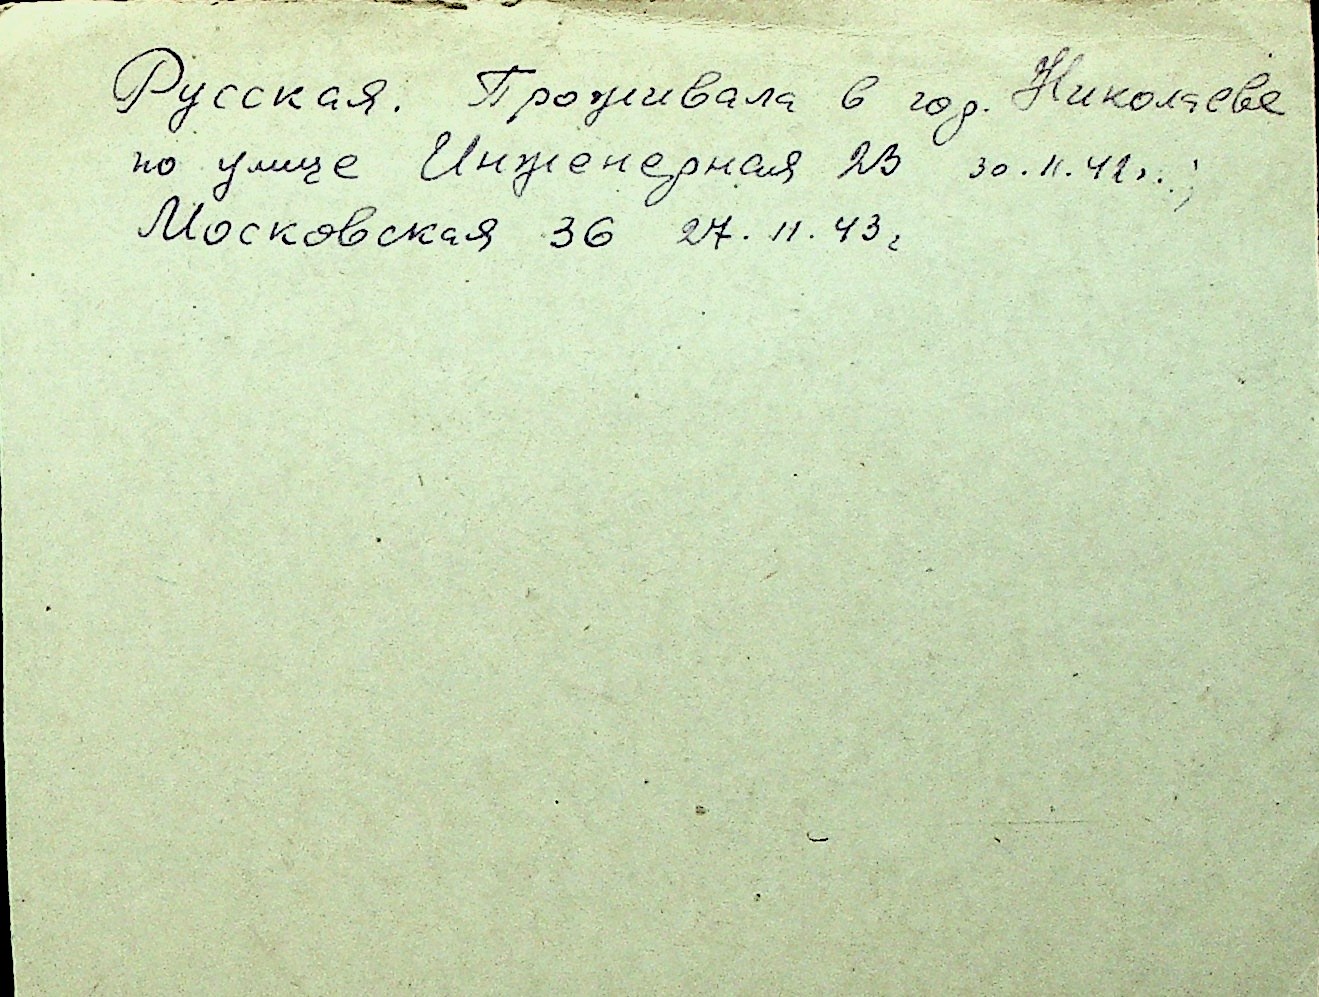 Русская. Проживала в гор. Николаеве
по улице Инженерная 23 30.11.42г.;
Московская 36 27.11.43г